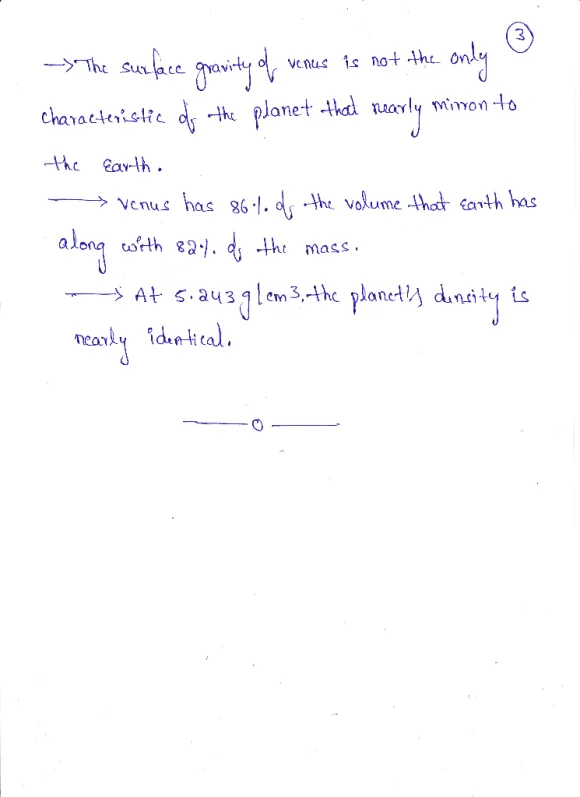 3
→ The surface gravity of venus is not the only
characteristic of the planet that nearly mirror to
the Earth.
→ venus has 86%. of the volume that earth has
along with 82%. of the mass.
→ At 5.243 g/cm3, the planet's density is
nearly identical.